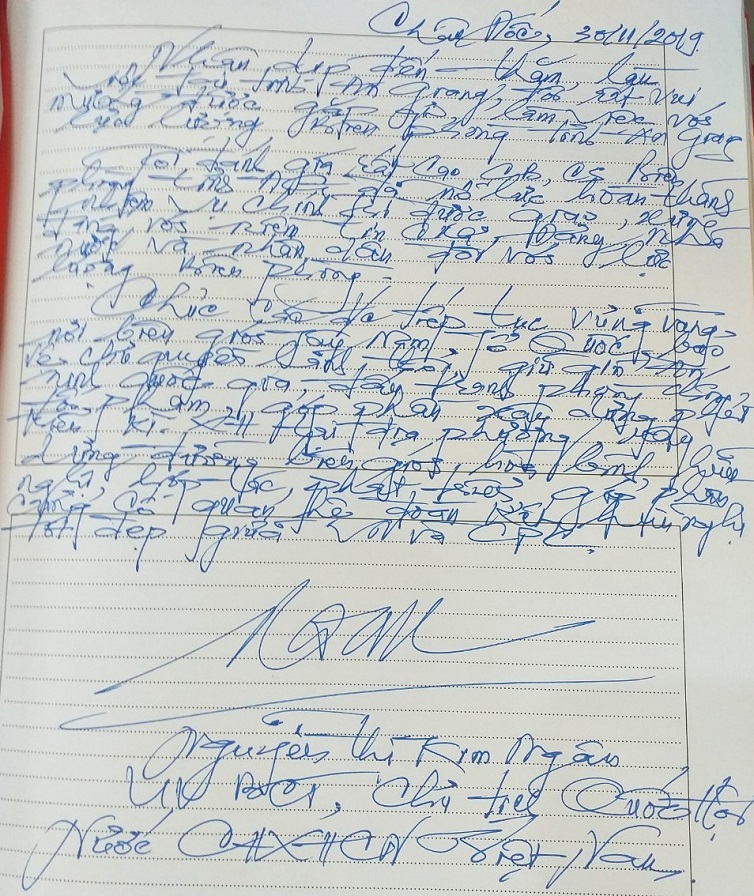 Châu Đốc, 30/11/2019
Nhân dịp đến thăm, làm
việc tại tỉnh An Giang, tôi rất vui
mừng được gặp gỡ, làm việc với
lực lượng Biên phòng tỉnh An Giang
Tôi đánh giá rất cao CB, CS Biên
phòng tỉnh đã nỗ lực hoàn thành
nhiệm vụ chính trị được giao, xứng
đáng với niềm tin của Đảng, Nhà
nước và nhân dân đối với lực
lượng biên phòng.
Chúc các đ/c tiếp tục vững vàng
nơi biên giới Tây Nam Tổ Quốc, bảo
vệ chủ quyền lãnh thổ, giữ gìn an
ninh quốc gia, đấu tranh phòng chống
tội phạm, góp phần xây dựng phát
triển KT-XH tại địa phương, xây
dựng đường biên giới, hòa bình, hữu
nghị, hợp tác, phát triển, góp phần
củng cố quan hệ đoàn kết, hữu nghị
tốt đẹp giữa VN và CPC.
Nguyễn Thị Kim Ngân
UV BCT, Chủ tịch Quốc Hội
Nước CHXHCN Việt Nam